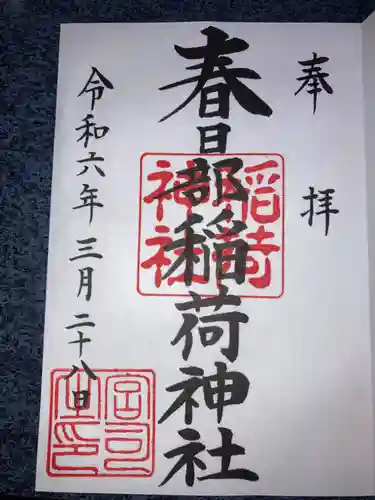 奉拝
春日部稲荷神社
令和六年三月二十八日
稲荷神社
宮司之印